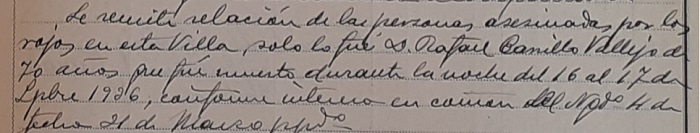 Se remite relación de las personas asesinadas por los
rojos en esta Villa, solo lo fué D. Rafael Carrillo Vallejo de
70 años que fué muerto durante la noche del 16 al 17 de
Spbre 1936, conforme interesa en comon del Ngdº 4 de
fecha 21 de Marzo ppdº